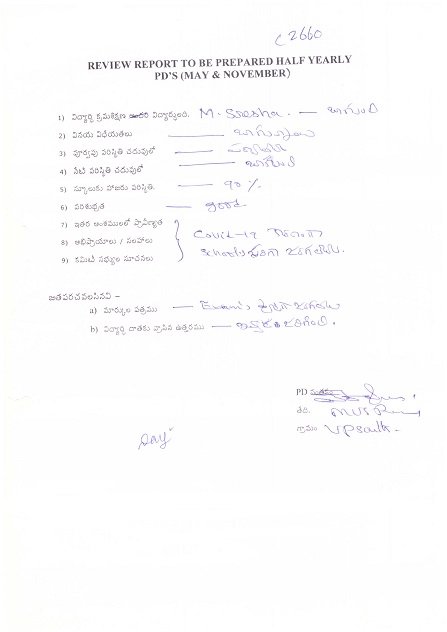 C 2660
REVIEW REPORT TO BE PREPARED HALF YEARLY
PD'S (MAY & NOVEMBER)
1) విద్యార్థి క్రమశిక్షణ ఇతర విద్యార్థులది. M. Sresha. — బాగుంది
2) వినయ విధేయతలు — బాగున్నాయి
3) పూర్వపు పరిస్థితి చదువులో —
4) నేటి పరిస్థితి చదువులో — బాగుంది
5) స్కూలుకు హాజరు పరిస్థితి. — 90 %.
6) పరిశుభ్రత — good
7) ఇతర అంశములలో ప్రావీణ్యత
8) అభిప్రాయాలు / సలహాలు
9) కమిటీ సభ్యుల సూచనలు
Covid-19 కారణంగా
schools సరిగా జరగలేదు.
జతపరచవలసినవి –
a) మార్కుల పత్రము — Exams సరిగా జరగలేదు
b) విద్యార్థి దాతకు వ్రాసిన ఉత్తరము — ఇవ్వడం జరిగింది.
PD
తేది.
గ్రామం VPSouth